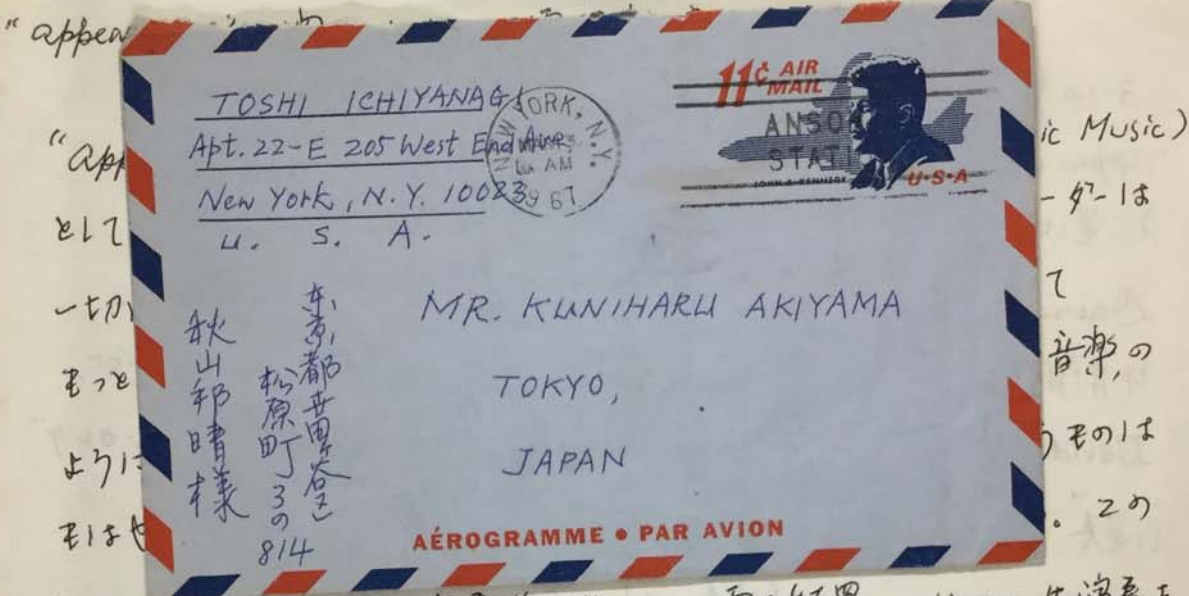 "appea
"app
ic Music)
として
ーダーは
一切
て
もっと
音楽の
ように
うものは
もはや
。この
TOSHI ICHIYANAGI
Apt. 22-E 205 West End Ave.
New York, N.Y. 10023
U. S. A.
NEW YORK, N.Y.
AM
67
11¢ AIR
MAIL
ANSO
STATI
JOHN F. KENNEDY
U·S·A
MR. KUNIHARU AKIYAMA
TOKYO,
JAPAN
東京都世田谷区
松原町3の814
秋山邦晴様
AÉROGRAMME • PAR AVION